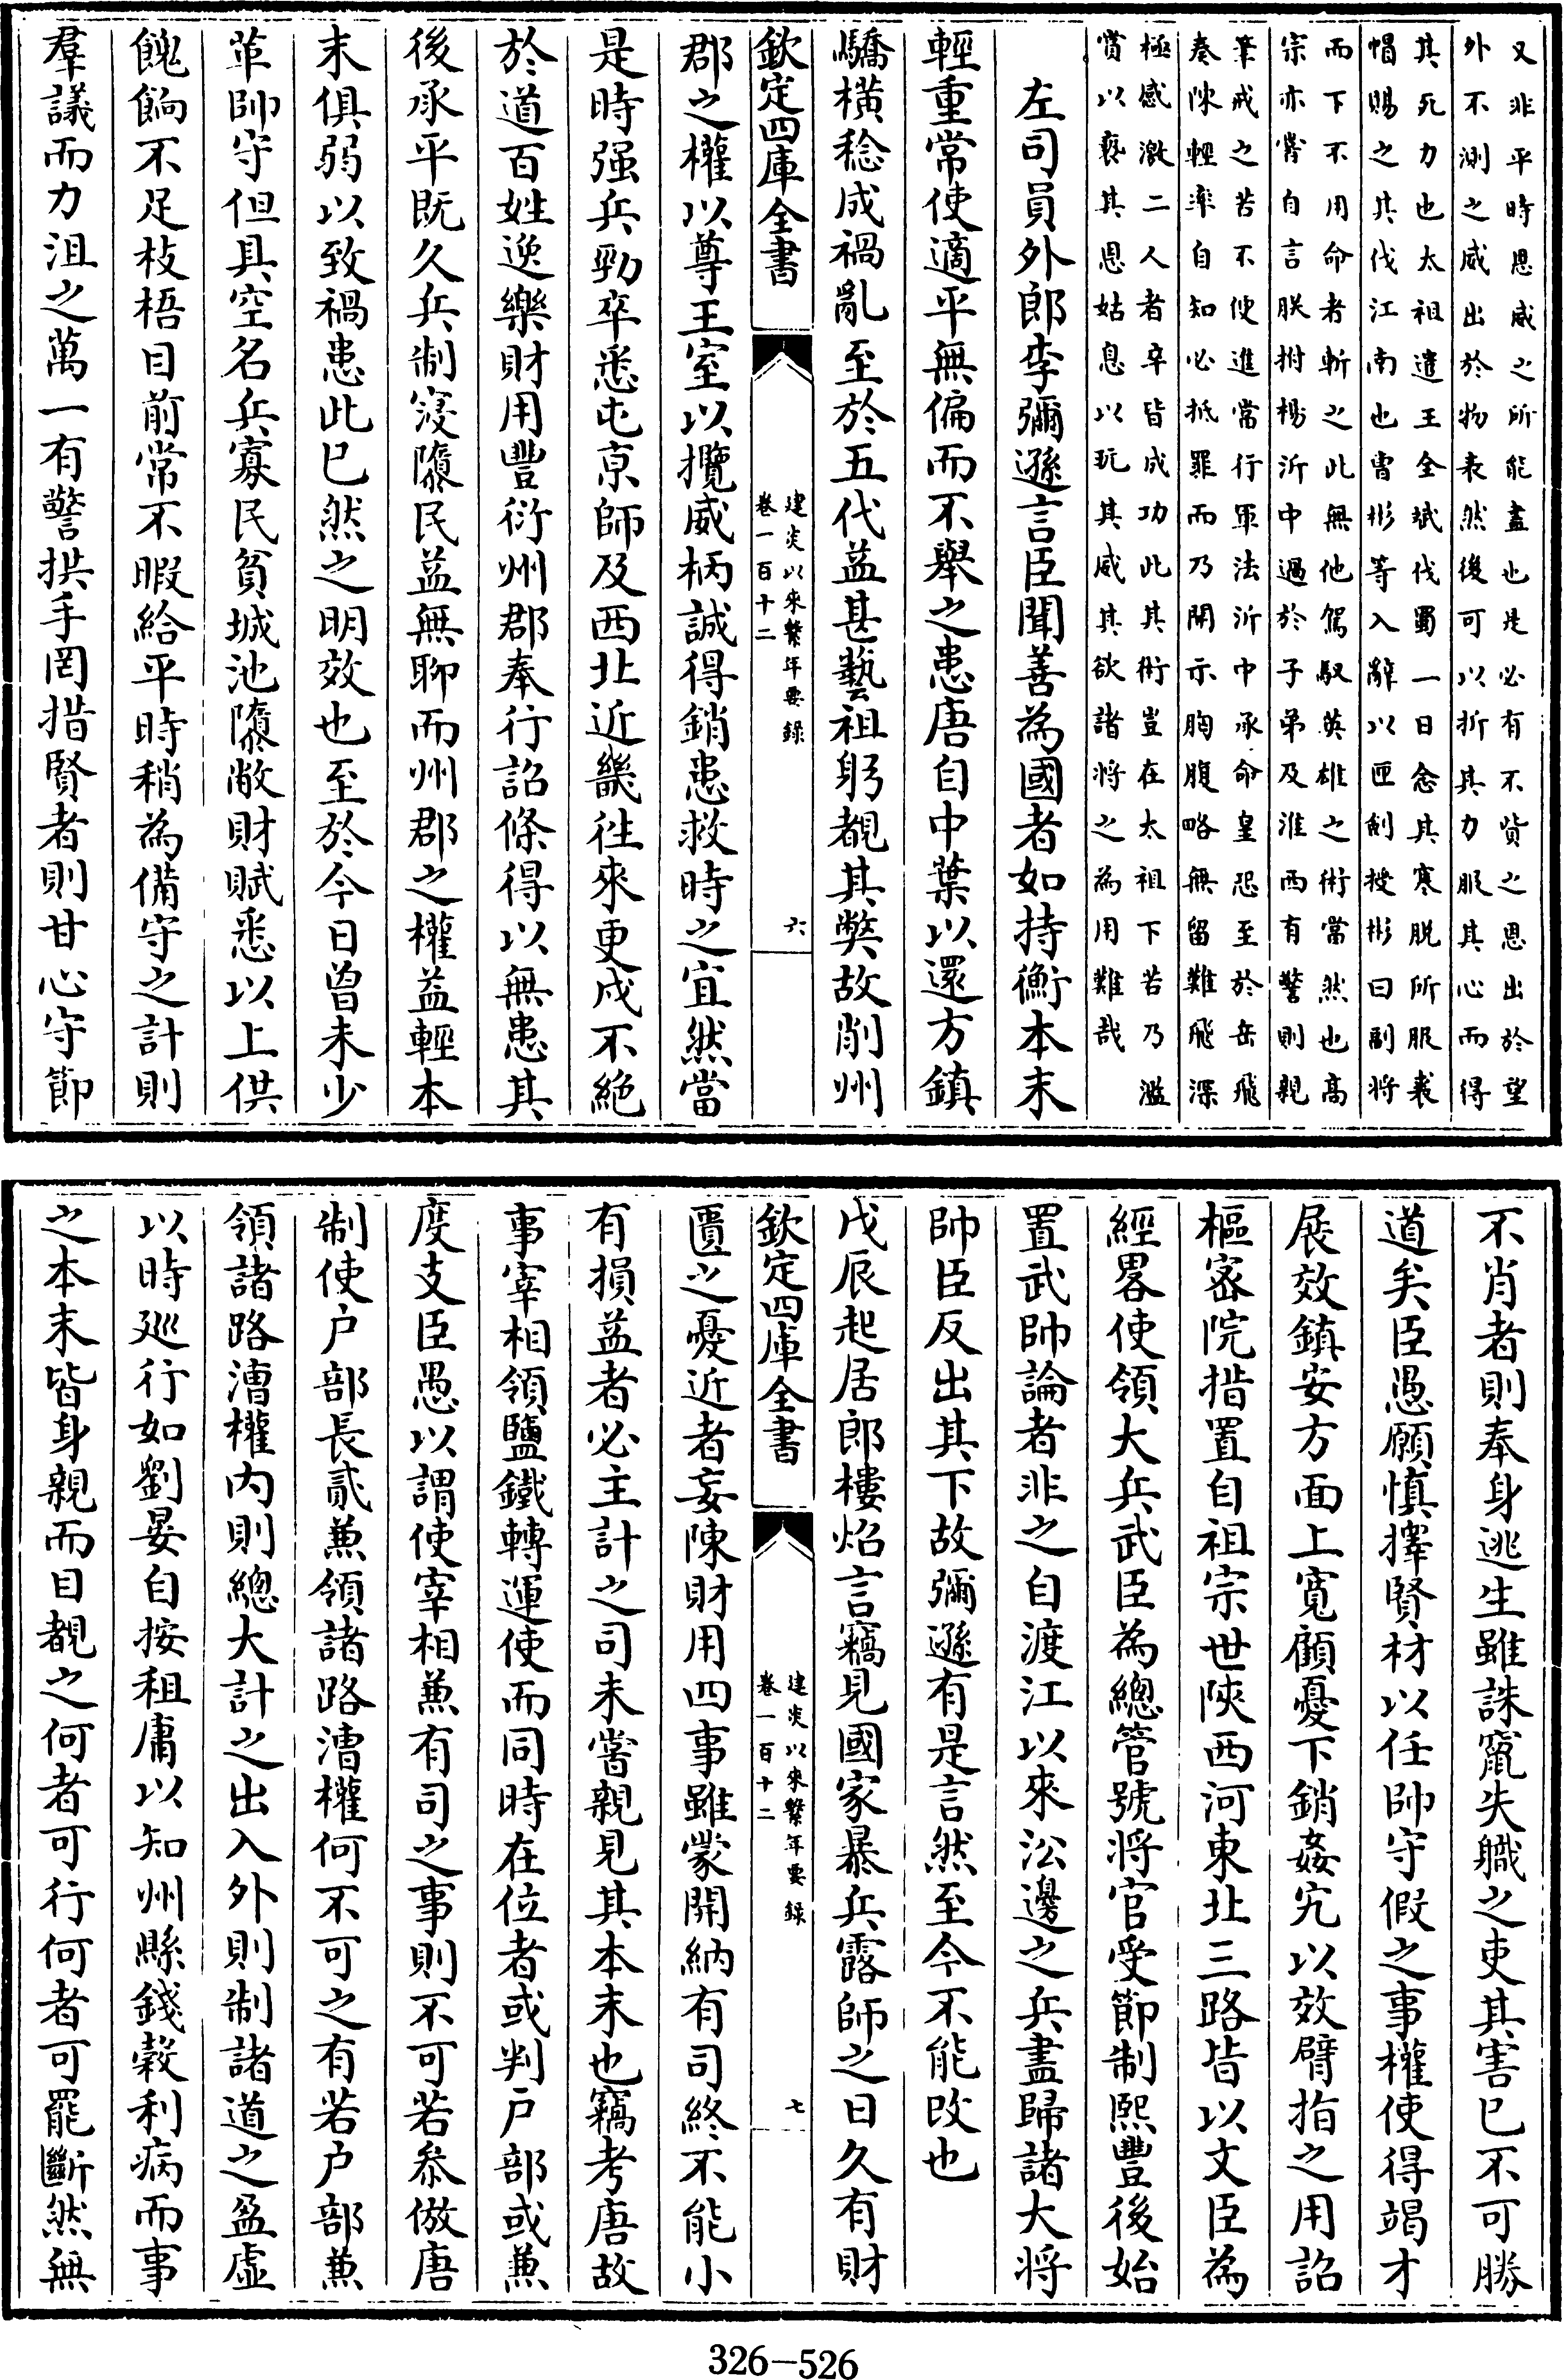 又非平時恩威之所能盡也是必有不貲之恩出於望
外不測之威出於物表然後可以折其力服其心而得
其死力也太祖遣王全斌伐蜀一日念其寒脱所服裘
帽賜之其伐江南也曹彬等入辭以匣劍授彬曰副將
而下不用命者斬之此無他駕馭英雄之術當然也髙
宗亦嘗自言朕拊楊沂中過於子弟及淮西有警則親
筆戒之若不使進當行軍法沂中承命皇恐至於岳飛
奏陳輕率自知必抵罪而乃開示胸腹略無留難飛深
極感激二人者卒皆成功此其術豈在太祖下若乃濫
賞以褻其恩姑息以玩其威其欲諸將之為用難哉
左司員外郎李彌遜言臣聞善為國者如持衡本末
輕重常使適平無偏而不舉之患唐自中葉以還方鎮
驕橫稔成禍亂至於五代益甚藝祖躬覩其弊故削州
欽定四庫全書
建炎以來繫年要錄
卷一百十二
六
郡之權以尊王室以攬威柄誠得銷患救時之宜然當
是時强兵勁卒悉屯京師及西北近畿徃來更戍不絶
於道百姓逸樂財用豐衍州郡奉行詔條得以無患其
後承平既久兵制寖隳民益無聊而州郡之權益輕本
末俱弱以致禍患此已然之明效也至於今日曾未少
革帥守但具空名兵寡民貧城池隳敝財賦悉以上供
餽餉不足枝梧目前常不暇給平時稍為備守之計則
羣議而力沮之萬一有警拱手罔措賢者則甘心守節
不肖者則奉身逃生雖誅竄失職之吏其害已不可勝
道矣臣愚願慎擇賢材以任帥守假之事權使得竭才
展效鎮安方面上寛顧憂下銷姦宄以效臂指之用詔
樞宻院措置自祖宗世陜西河東北三路皆以文臣為
經畧使領大兵武臣為總管號將官受節制熙豐後始
置武帥論者非之自渡江以來沿邊之兵盡歸諸大將
帥臣反出其下故彌遜有是言然至今不能改也
戊辰起居郎樓炤言竊見國家暴兵露師之日久有財
欽定四庫全書
建炎以來繫年要錄
卷一百十二
七
匱之憂近者妄陳財用四事雖蒙開納有司終不能小
有損益者必主計之司未嘗親見其本末也竊考唐故
事宰相領鹽鐵轉運使而同時在位者或判戸部或兼
度支臣愚以謂使宰相兼有司之事則不可若叅倣唐
制使户部長貳兼領諸路漕權何不可之有若户部兼
領諸路漕權内則總大計之出入外則制諸道之盈虚
以時廵行如劉晏自按租庸以知州縣錢穀利病而事
之本末皆身親而目覩之何者可行何者可罷斷然無
326—526